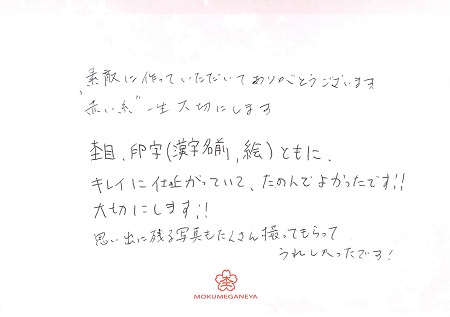 素敵に作っていただいてありがとうございます
"赤い糸" 一生大切にします
杢目、印字(漢字名前,絵)ともに、
キレイに仕上がっていて、たのんでよかったです!!
大切にします!!
思い出に残る写真もたくさん撮ってもらって
うれしかったです!
杢
MOKUMEGANEYA